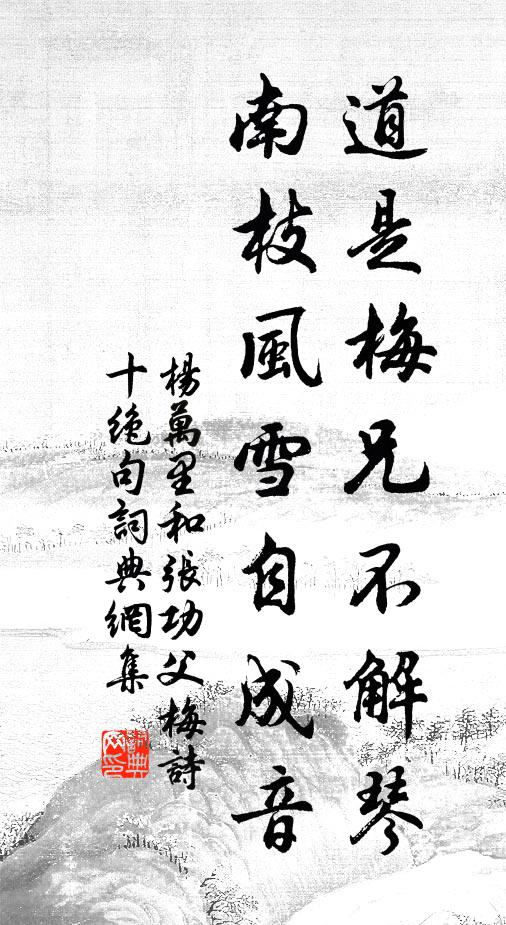 道是梅兄不解琴
南枝風雪自成音
楊萬里和張功父梅詩
十絕句詞典網集